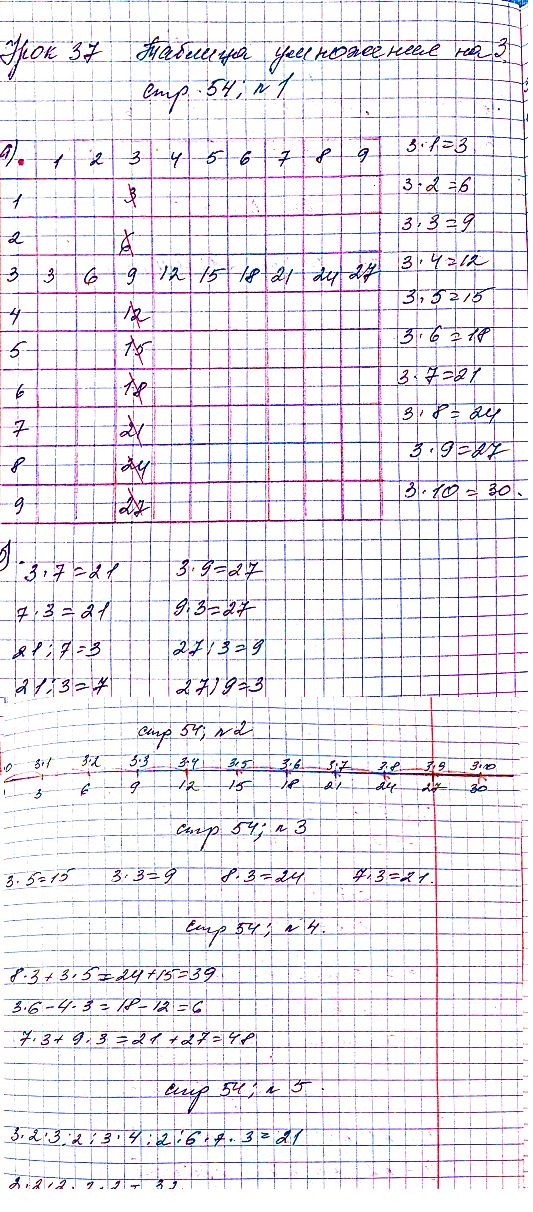 Урок 37 Таблица умножения на 3
стр. 54; № 1
а) • 1 2 3 4 5 6 7 8 9
1 3
2 6
3 3 6 9 12 15 18 21 24 27
4 12
5 15
6 18
7 21
8 24
9 27
3·1=3
3·2=6
3·3=9
3·4=12
3·5=15
3·6=18
3·7=21
3·8=24
3·9=27
3·10=30.
б)
3·7=21 3·9=27
7·3=21 9·3=27
21:7=3 27:3=9
21:3=7 27:9=3
стр 54; № 2
0 3·1 3·2 3·3 3·4 3·5 3·6 3·7 3·8 3·9 3·10
3 6 9 12 15 18 21 24 27 30
стр 54; № 3
3·5=15 3·3=9 8·3=24 7·3=21.
стр 54; № 4.
8·3+3·5=24+15=39
3·6-4·3=18-12=6
7·3+9·3=21+27=48
стр 54; № 5.
3·2:3:2:3·4:2:6·7·3=21